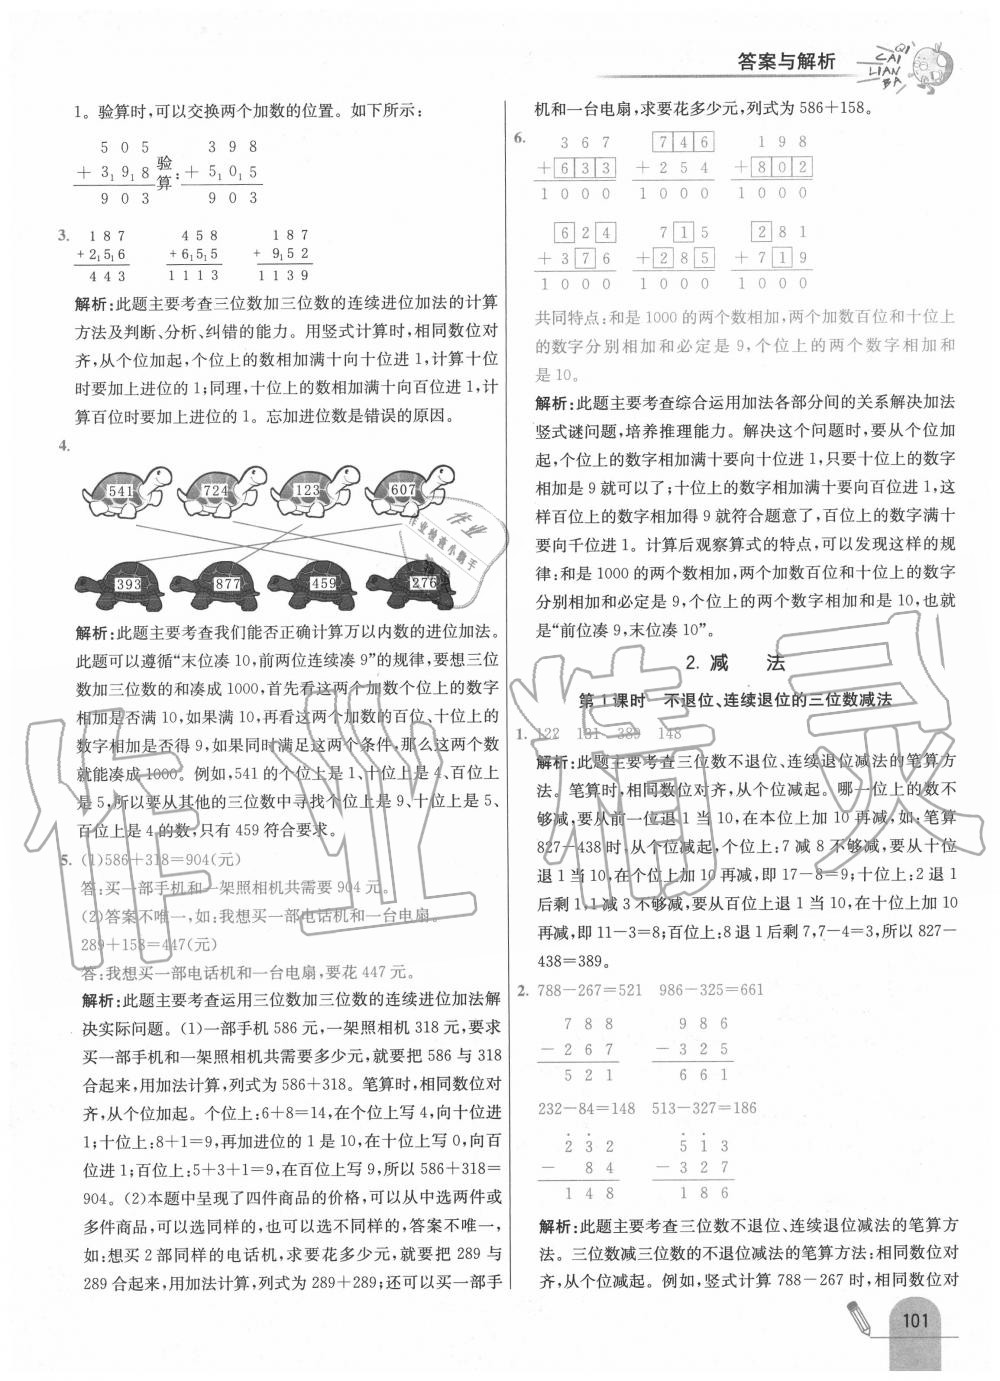 答案与解析
QI
CAI
LIAN
BA
1。验算时,可以交换两个加数的位置。如下所示:
5 0 5
+ 3₁ 9₁ 8
9 0 3
验算:
3 9 8
+ 5₁ 0₁ 5
9 0 3
3.
1 8 7
+ 2₁ 5₁ 6
4 4 3
4 5 8
+ 6₁ 5₁ 5
1 1 1 3
1 8 7
+ 9₁ 5 2
1 1 3 9
解析:此题主要考查三位数加三位数的连续进位加法的计算
方法及判断、分析、纠错的能力。用竖式计算时,相同数位对
齐,从个位加起,个位上的数相加满十向十位进 1,计算十位
时要加上进位的 1;同理,十位上的数相加满十向百位进 1,计
算百位时要加上进位的 1。忘加进位数是错误的原因。
4.
541 724 123 607
393 877 459 276
解析:此题主要考查我们能否正确计算万以内数的进位加法。
此题可以遵循“末位凑 10,前两位连续凑 9”的规律,要想三位
数加三位数的和凑成 1000,首先看这两个加数个位上的数字
相加是否满 10,如果满 10,再看这两个加数的百位、十位上的
数字相加是否得 9,如果同时满足这两个条件,那么这两个数
就能凑成 1000。例如,541 的个位上是 1、十位上是 4、百位上
是 5,所以要从其他的三位数中寻找个位上是 9、十位上是 5、
百位上是 4 的数,只有 459 符合要求。
5. (1)586+318=904(元)
答:买一部手机和一架照相机共需要 904 元。
(2)答案不唯一,如:我想买一部电话机和一台电扇。
289+158=447(元)
答:我想买一部电话机和一台电扇,要花 447 元。
解析:此题主要考查运用三位数加三位数的连续进位加法解
决实际问题。(1)一部手机 586 元,一架照相机 318 元,要求
买一部手机和一架照相机共需要多少元,就要把 586 与 318
合起来,用加法计算,列式为 586+318。笔算时,相同数位对
齐,从个位加起。个位上:6+8=14,在个位上写 4,向十位进
1;十位上:8+1=9,再加进位的 1 是 10,在十位上写 0,向百
位进 1;百位上:5+3+1=9,在百位上写 9,所以 586+318=
904。(2)本题中呈现了四件商品的价格,可以从中选两件或
多件商品,可以选同样的,也可以选不同样的,答案不唯一,
如:想买 2 部同样的电话机,求要花多少元,就要把 289 与
289 合起来,用加法计算,列式为 289+289;还可以买一部手
机和一台电扇,求要花多少元,列式为 586+158。
6.
3 6 7
+ 6 3 3
1 0 0 0
7 4 6
+ 2 5 4
1 0 0 0
1 9 8
+ 8 0 2
1 0 0 0
6 2 4
+ 3 7 6
1 0 0 0
7 1 5
+ 2 8 5
1 0 0 0
2 8 1
+ 7 1 9
1 0 0 0
共同特点:和是 1000 的两个数相加,两个加数百位和十位上
的数字分别相加和必定是 9,个位上的两个数字相加和
是 10。
解析:此题主要考查综合运用加法各部分间的关系解决加法
竖式谜问题,培养推理能力。解决这个问题时,要从个位加
起,个位上的数字相加满十要向十位进 1,只要十位上的数字
相加是 9 就可以了;十位上的数字相加满十要向百位进 1,这
样百位上的数字相加得 9 就符合题意了,百位上的数字满十
要向千位进 1。计算后观察算式的特点,可以发现这样的规
律:和是 1000 的两个数相加,两个加数百位和十位上的数字
分别相加和必定是 9,个位上的两个数字相加和是 10,也就
是“前位凑 9,末位凑 10”。
2. 减 法
第 1 课时 不退位、连续退位的三位数减法
1. 122 181 389 148
解析:此题主要考查三位数不退位、连续退位减法的笔算方
法。笔算时,相同数位对齐,从个位减起。哪一位上的数不
够减,要从前一位退 1 当 10,在本位上加 10 再减,如:笔算
827-438时,从个位减起,个位上:7 减 8 不够减,要从十位
退 1 当 10,在个位上加 10 再减,即 17-8=9;十位上:2 退 1
后剩 1,1 减 3 不够减,要从百位上退 1 当 10,在十位上加 10
再减,即 11-3=8;百位上:8 退 1 后剩 7,7-4=3,所以 827-
438=389。
2. 788-267=521 986-325=661
7 8 8
- 2 6 7
5 2 1
9 8 6
- 3 2 5
6 6 1
232-84=148 513-327=186
2 3 2
- 8 4
1 4 8
5 1 3
- 3 2 7
1 8 6
解析:此题主要考查三位数不退位、连续退位减法的笔算方
法。三位数减三位数的不退位减法的笔算方法:相同数位对
齐,从个位减起。例如,竖式计算 788-267 时,相同数位对
101
作业精灵
作业
作业检查小助手